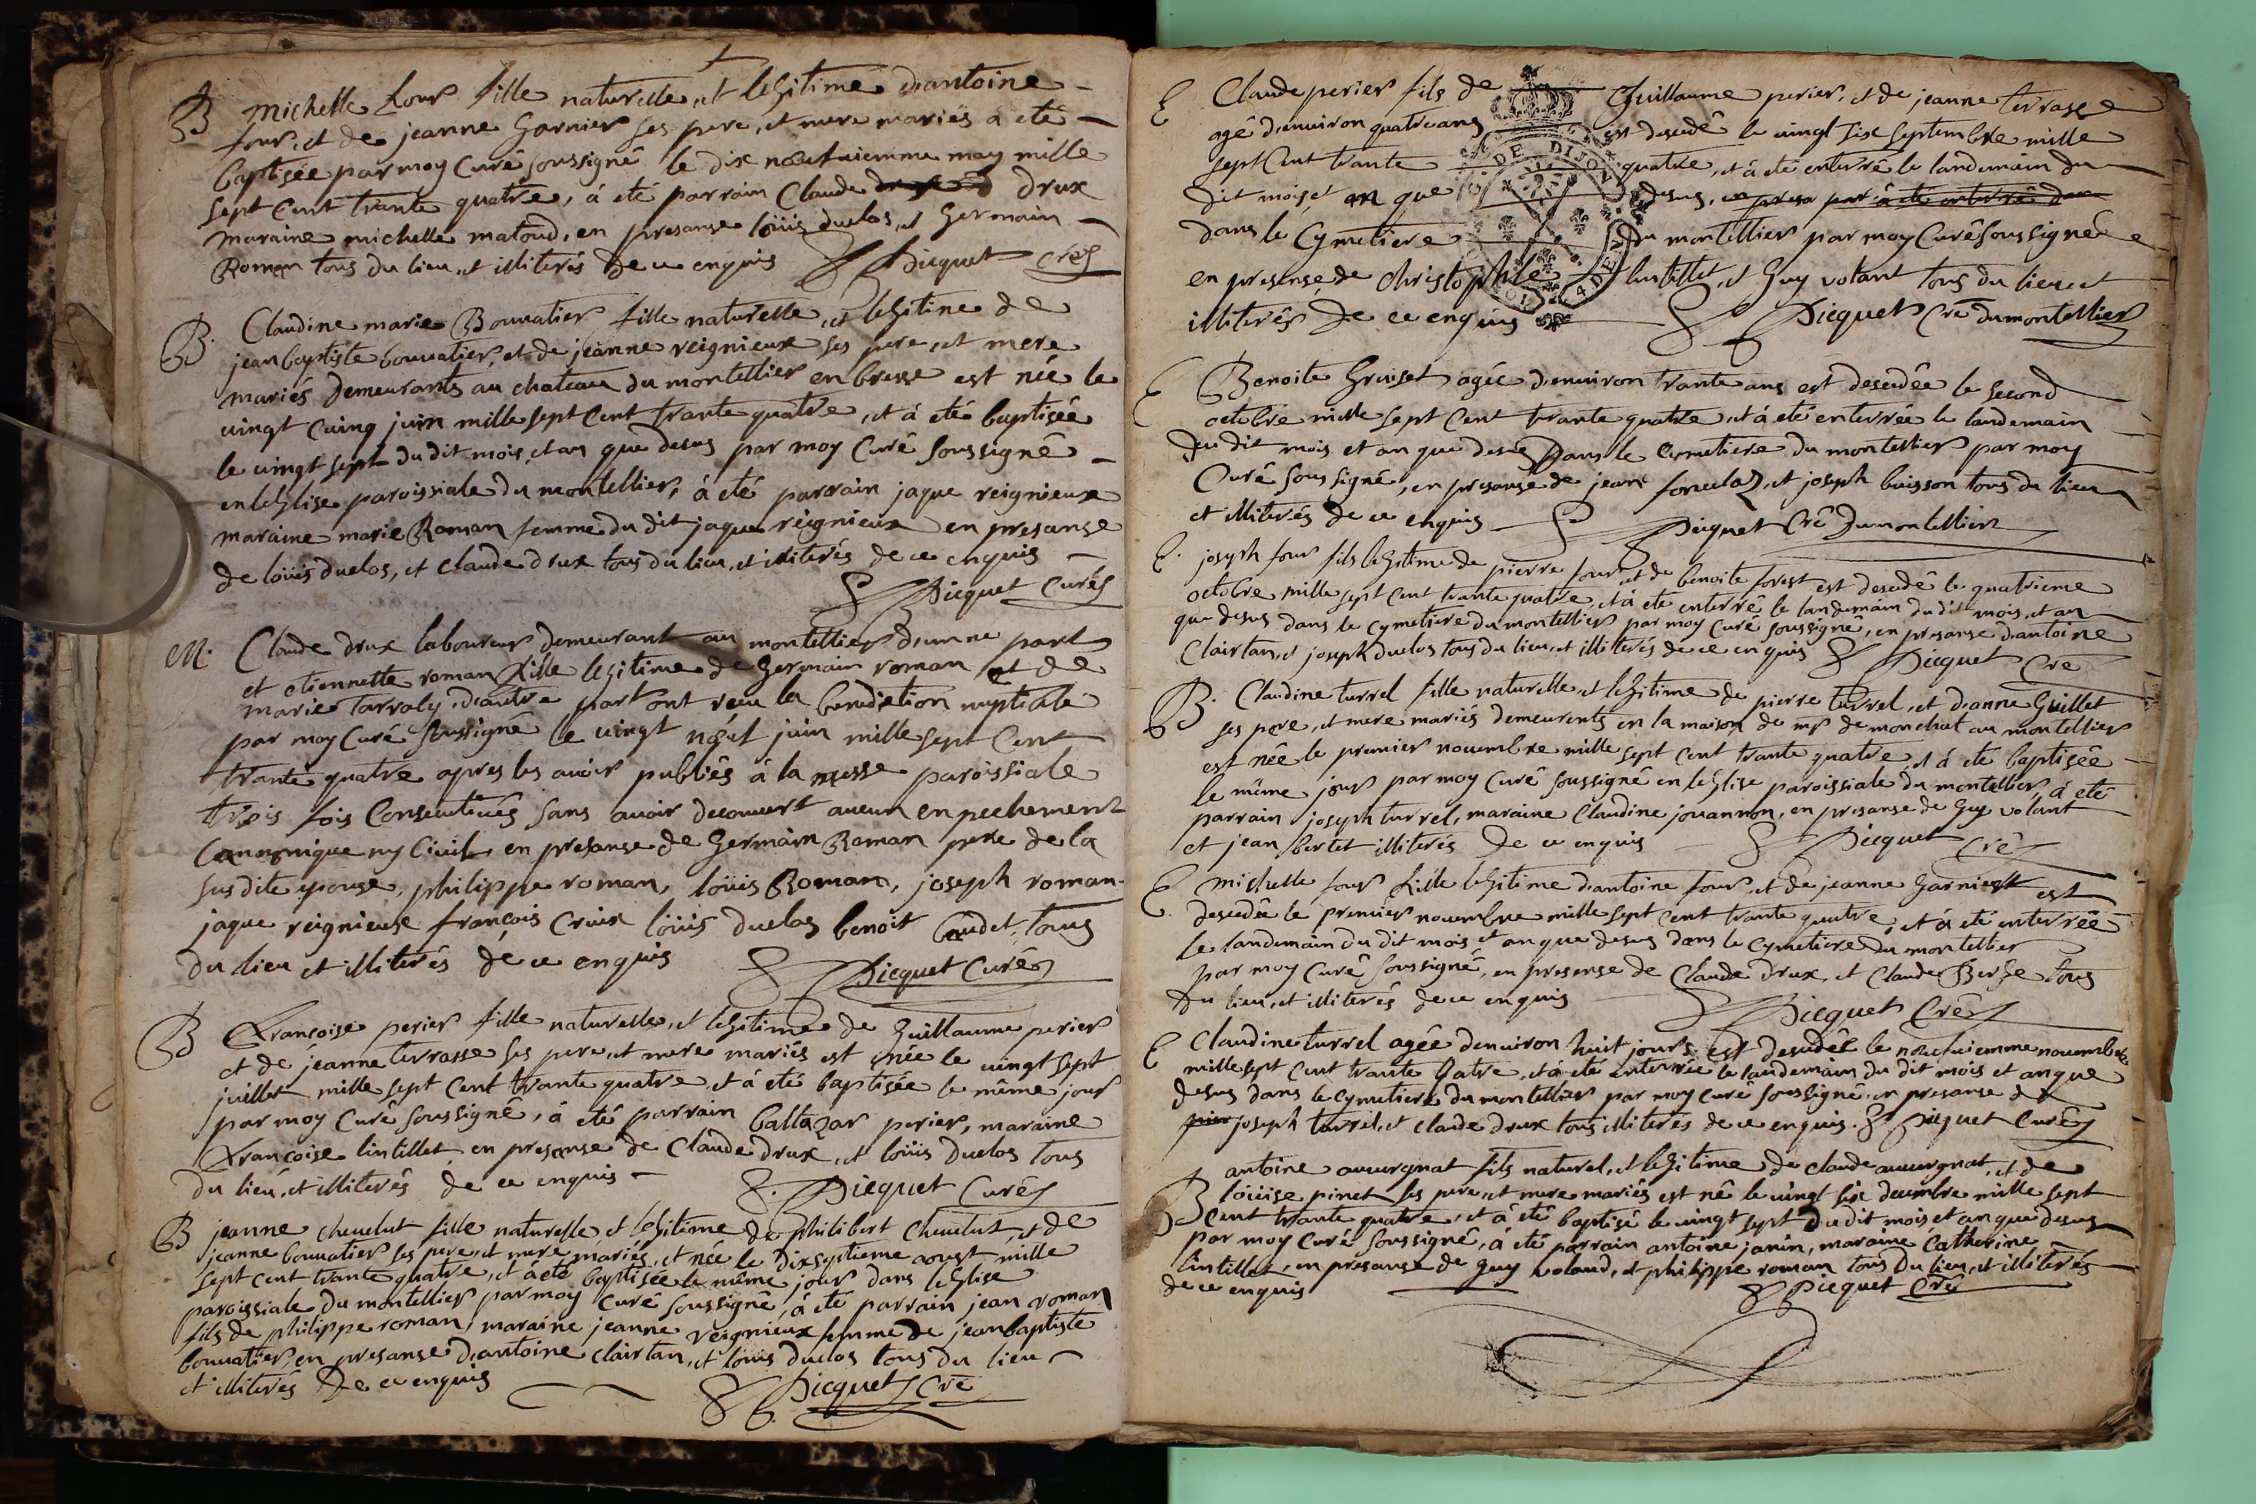 B michelle four fille naturelle, et legitime d'antoine
four, et de jeanne Garnier ses pere, et mere mariés a eté
baptisée par moy Curé soussigné le dix neufuiemme may mille
sept Cent trante quatre, á eté parrain Claude drux
maraine michelle matoud, en presanse loüis duclos, et Germain
Roman tous du lieu, et illiterés de ce enquis Picquet Cré
B. Claudine marie Bouuatier fille naturelle, et legitime de
jean baptiste bouuatier, et de jeanne reignieux ses pere, et mere
mariés demeurants au chateau du montellier en bresse est née le
uingt cuinq juin mille sept Cent trante quatre, et á eté baptisée
le uingt sept du dit mois, et an que desus par moy Curé soussigné
en leglise paroissiale du montellier, á eté parrain jaque reignieux
maraine marie Roman femme du dit jaque reignieux en presanse
de loüis duclos, et Claude drux tous du lieu, et illiterés de ce enquis
Picquet Curé
M. Claude drux laboureur demeurant au montellier d'unne part
et etiennette roman fille legitime de Germain roman et de
marie tarraly d'autre part ont reçu la benediction nuptiale
par moy Curé soussigné le uingt neuf juin mille sept Cent
trante quatre apres les auoir publiés á la messe paroissiale
trois fois Consecutiues sans auoir decouuert aucun enpechement
Canonnique ny Ciuil en presanse de Germain Roman pere de la
sus dite epouse, philippe roman, loüis Roman, joseph roman
jaque reignieux françois Criux loüis duclos benoit baudet tous
du lieu et illiterés de ce enquis Picquet Curé
B Françoise perier fille naturelle, et legitime de Guillaume perier
et de jeanne terrasse ses pere, et mere mariés est née le uingt sept
juillet mille sept Cent trante quatre, et á eté baptisée le même jour
par moy Curé soussigné, á eté parrain baltazar perier, maraine
Françoise lintillet en presanse de Claude drux, et loüis duclos tous
du lieu, et illiterés de ce enquis Picquet Curé
B jeanne cheuelut fille naturelle, et legitime de philibert Cheuelut, et de
jeanne bouuatier ses pere, et mere mariés, et née le dixseptieme aoust mille
sept cent trante quatre, et á eté baptisée le même jour dans leglise
paroissiale du montellier par moy Curé soussigné, á eté parrain jean roman
fils de philippe roman, maraine jeanne reignieux femme de jean baptiste
bouuatier, en presanse d'antoine clairtan, et loüis duclos tous du lieu
et illiterés de ce enquis Picquet Cré
E Claude perier fils de Guillaume perier, et de jeanne terrasse
agé d'enuiron quatre ans est decedé le uingt six septembre mille
sept Cent trante quatre, et á eté enterré le landemain du
dit mois, et an que desus,
dans le Cymetiere du montellier par moy Curé soussigné
en presense de Christophle lintillet, et Guy volant tous du lieu, et
illiterés de ce enquis Picquet Cré du montellier
E Benoite Gruiset agée d'enuiron trante ans est decedée le second
octobre mille sept Cent trante quatre, et á eté enterrée le landemain
du dit mois et an que desus Dans le Cymetiere du montellier par moy
Curé soussigné, en presanse de jean et joseph buisson tous du lieu
et illiterés de ce enquis Picquet Cré Dumontellier
E. joseph four fils legitime de pierre four, et de benoite forest est decedé le quatrieme
octobre mille sept Cent trante quatre, et á eté enterré le landemain du dit mois, et an
que desus dans le Cymetiere du montellier par moy Curé soussigné, en presanse d'antoine
Clairtan, et joseph duclos tous du lieu, et illiterés de ce enquis Picquet Cre
B. Claudine turrel fille naturelle, et legitime de pierre turrel, et d'anne Guillet
ses pere, et mere mariés demeurents en la maison de mr de monchat au montellier
est née le premier nouembre mille sept cent trante quatre, et á eté baptisée
le même jour par moy Curé soussigné en leglise paroissiale du montellier, á eté
parrain joseph turrel, maraine Claudine jouannon, en presanse de Guy volant
et jean bertet illiterés de ce enquis Picquet Cré
E. michelle four fille legitime d'antoine four, et de jeanne Garnier est
decedée le premier nouembre mille sept Cent trante quatre, et á eté enterrée
le landemain du dit mois et an que desus dans le Cymetiere du montellier
par moy Curé soussigné, en presense de Claude drux, et Claude Berge tous
du lieu, et illiterés de ce enquis Picquet Cré
E Claudine turrel agée d'enuiron huit jours est decedée le neufuiemme nouembre
mille sept Cent trante Qatre, et á eté enterrée le landemain du dit mois et an que
desus dans le Cymetiere du montellier par moy Curé soussigné en presanse de
joseph turrel, et claude drux tous illiterés de ce enquis. Picquet Curé
antoine auuergnat fils naturel, et legitime de claude auuergnat, et de
B loüise pinet ses pere, et mere mariés est né le uingt six decembre mille sept
cent trante quatre, et á eté baptisé le uingt sept du dit mois et an que desus
par moy Curé soussigné, á eté parrain antoine janin, maraine Catherine
lintillet, en presanse de guy volaud, et philippe roman tous du lieu, et illiterés
de ce enquis Picquet Cré